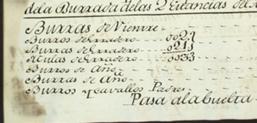 de la Burrada de las 2 Estancias de
Burras de Vientre
Burros de erradero 0021
Burras de erradero 0211
Mulas de erradero 0033
Burros de Año
Burras de Año
Burros y Cavallos Padres
Pasa a la buelta